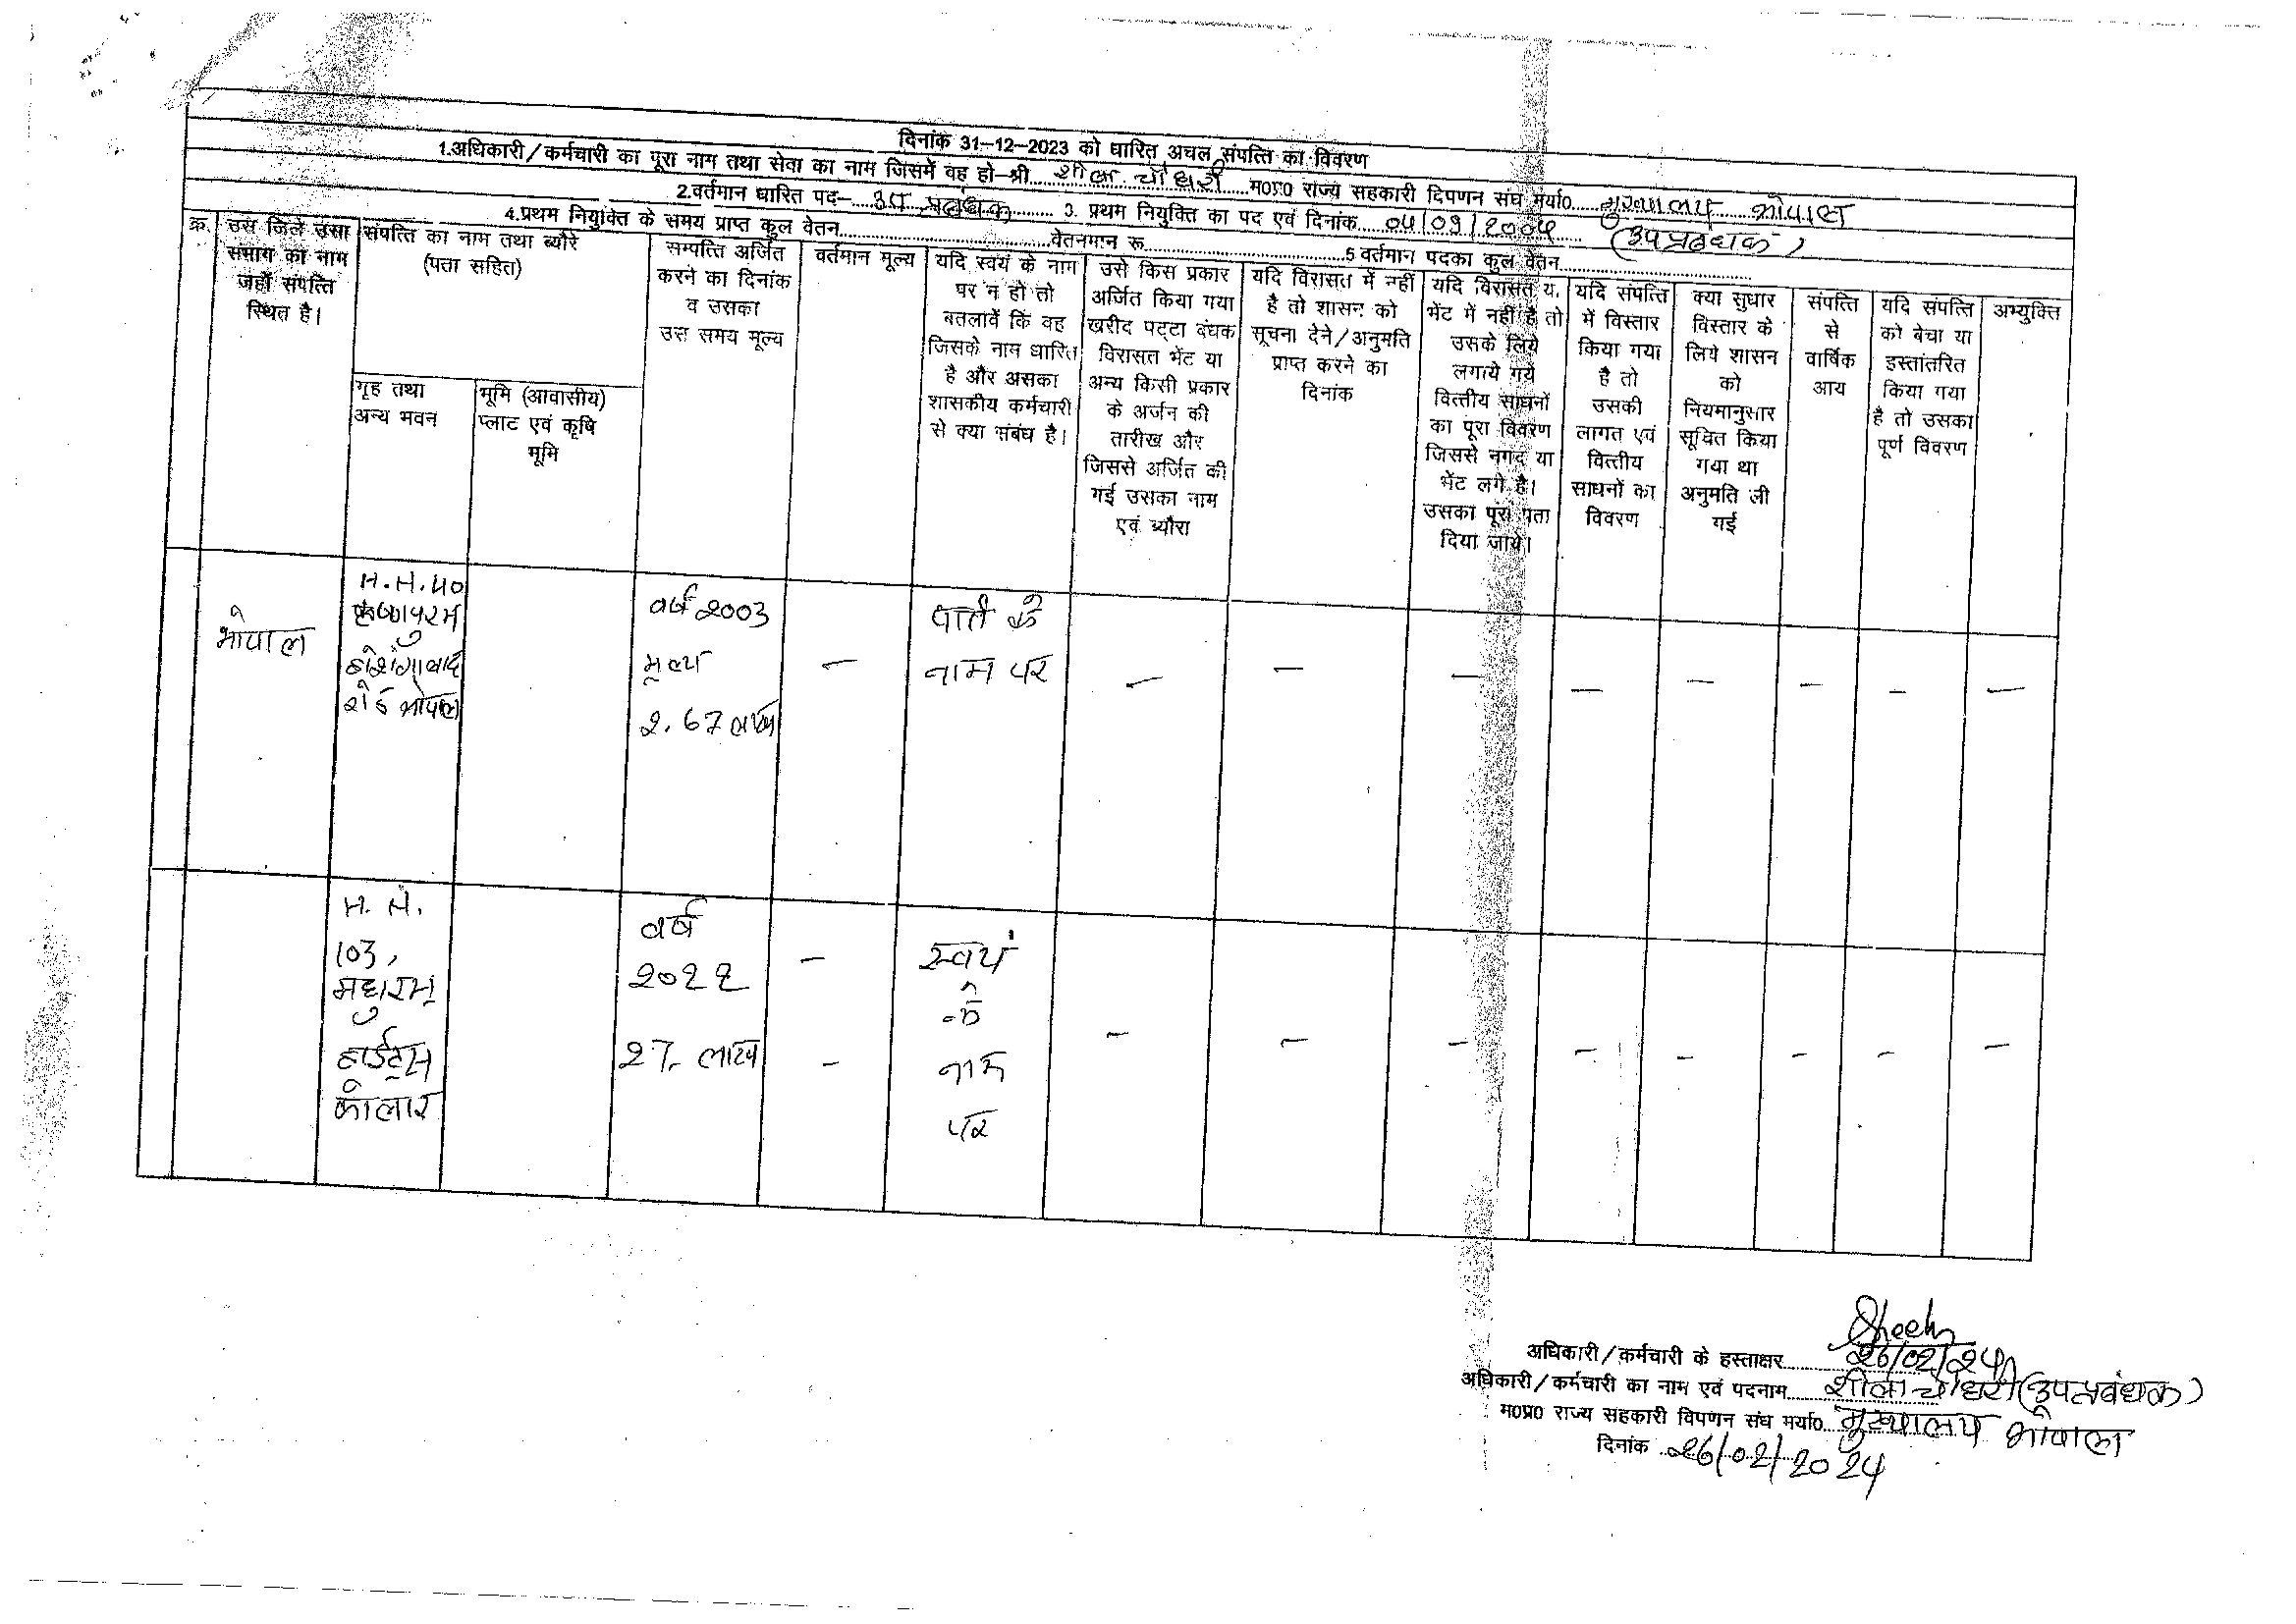 दिनांक 31-12-2023 को धारित अचल संपत्ति का विवरण
1.अधिकारी/कर्मचारी का पूरा नाम तथा सेवा का नाम जिसमें वह हो-श्री शीला चौधरी म0प्र0 राज्य सहकारी विपणन संघ मर्या0 मुख्यालय भोपाल
2.वर्तमान धारित पद- उप प्रबंधक 3. प्रथम नियुक्ति का पद एवं दिनांक 04/09/2004 (उपप्रबंधक)
4.प्रथम नियुक्ति के समय प्राप्त कुल वेतन वेतनमान रू 5 वर्तमान पदका कुल वेतन
क्र.
उस जिले उसा
संभाग का नाम
जहाँ संपत्ति
स्थित है।
संपत्ति का नाम तथा ब्यौरे
(पता सहित)
गृह तथा
अन्य भवन
भूमि (आवासीय)
प्लाट एवं कृषि
भूमि
सम्पत्ति अर्जित
करने का दिनांक
व उसका
उस समय मूल्य
वर्तमान मूल्य
यदि स्वयं के नाम
पर न हो तो
बतलावें कि वह
जिसके नाम धारित
है और असका
शासकीय कर्मचारी
से क्या संबंध है।
उसे किस प्रकार
अर्जित किया गया
खरीद पट्टा बंधक
विरासत भेंट या
अन्य किसी प्रकार
के अर्जन की
तारीख और
जिससे अर्जित की
गई उसका नाम
एवं ब्यौरा
यदि विरासत में नहीं
है तो शासन को
सूचना देने/अनुमति
प्राप्त करने का
दिनांक
यदि विरासत य.
भेंट में नहीं है तो
उसके लिये
लगाये गये
वित्तीय साधनों
का पूरा विवरण
जिससे नगद या
भेंट लगे है।
उसका पूरा पता
दिया जाये।
यदि संपत्ति
में विस्तार
किया गया
है तो
उसकी
लागत एवं
वित्तीय
साधनों का
विवरण
क्या सुधार
विस्तार के
लिये शासन
को
नियमानुसार
सूचित किया
गया था
अनुमति ली
गई
संपत्ति
से
वार्षिक
आय
यदि संपत्ति
को बेचा या
हस्तांतरित
किया गया
है तो उसका
पूर्ण विवरण
अभ्युक्ति
भोपाल
म.नं.40
कृष्णापुरम
होशंगाबाद
रोड भोपाल
वर्ष 2003
मूल्य
2.67 लाख
–
पति के
नाम पर
– – – – – – – –
म. नं.
103,
मधुरम
हाईट्स
कोलार
वर्ष
2022
27 लाख
–
–
स्वयं
के
नाम
पर
– – – – – – – –
Sheela
अधिकारी/कर्मचारी के हस्ताक्षर 26/02/24
अधिकारी/कर्मचारी का नाम एवं पदनाम शीला चौधरी (उपप्रबंधक)
म0प्र0 राज्य सहकारी विपणन संघ मर्या0 मुख्यालय भोपाल
दिनांक 26/02/2024